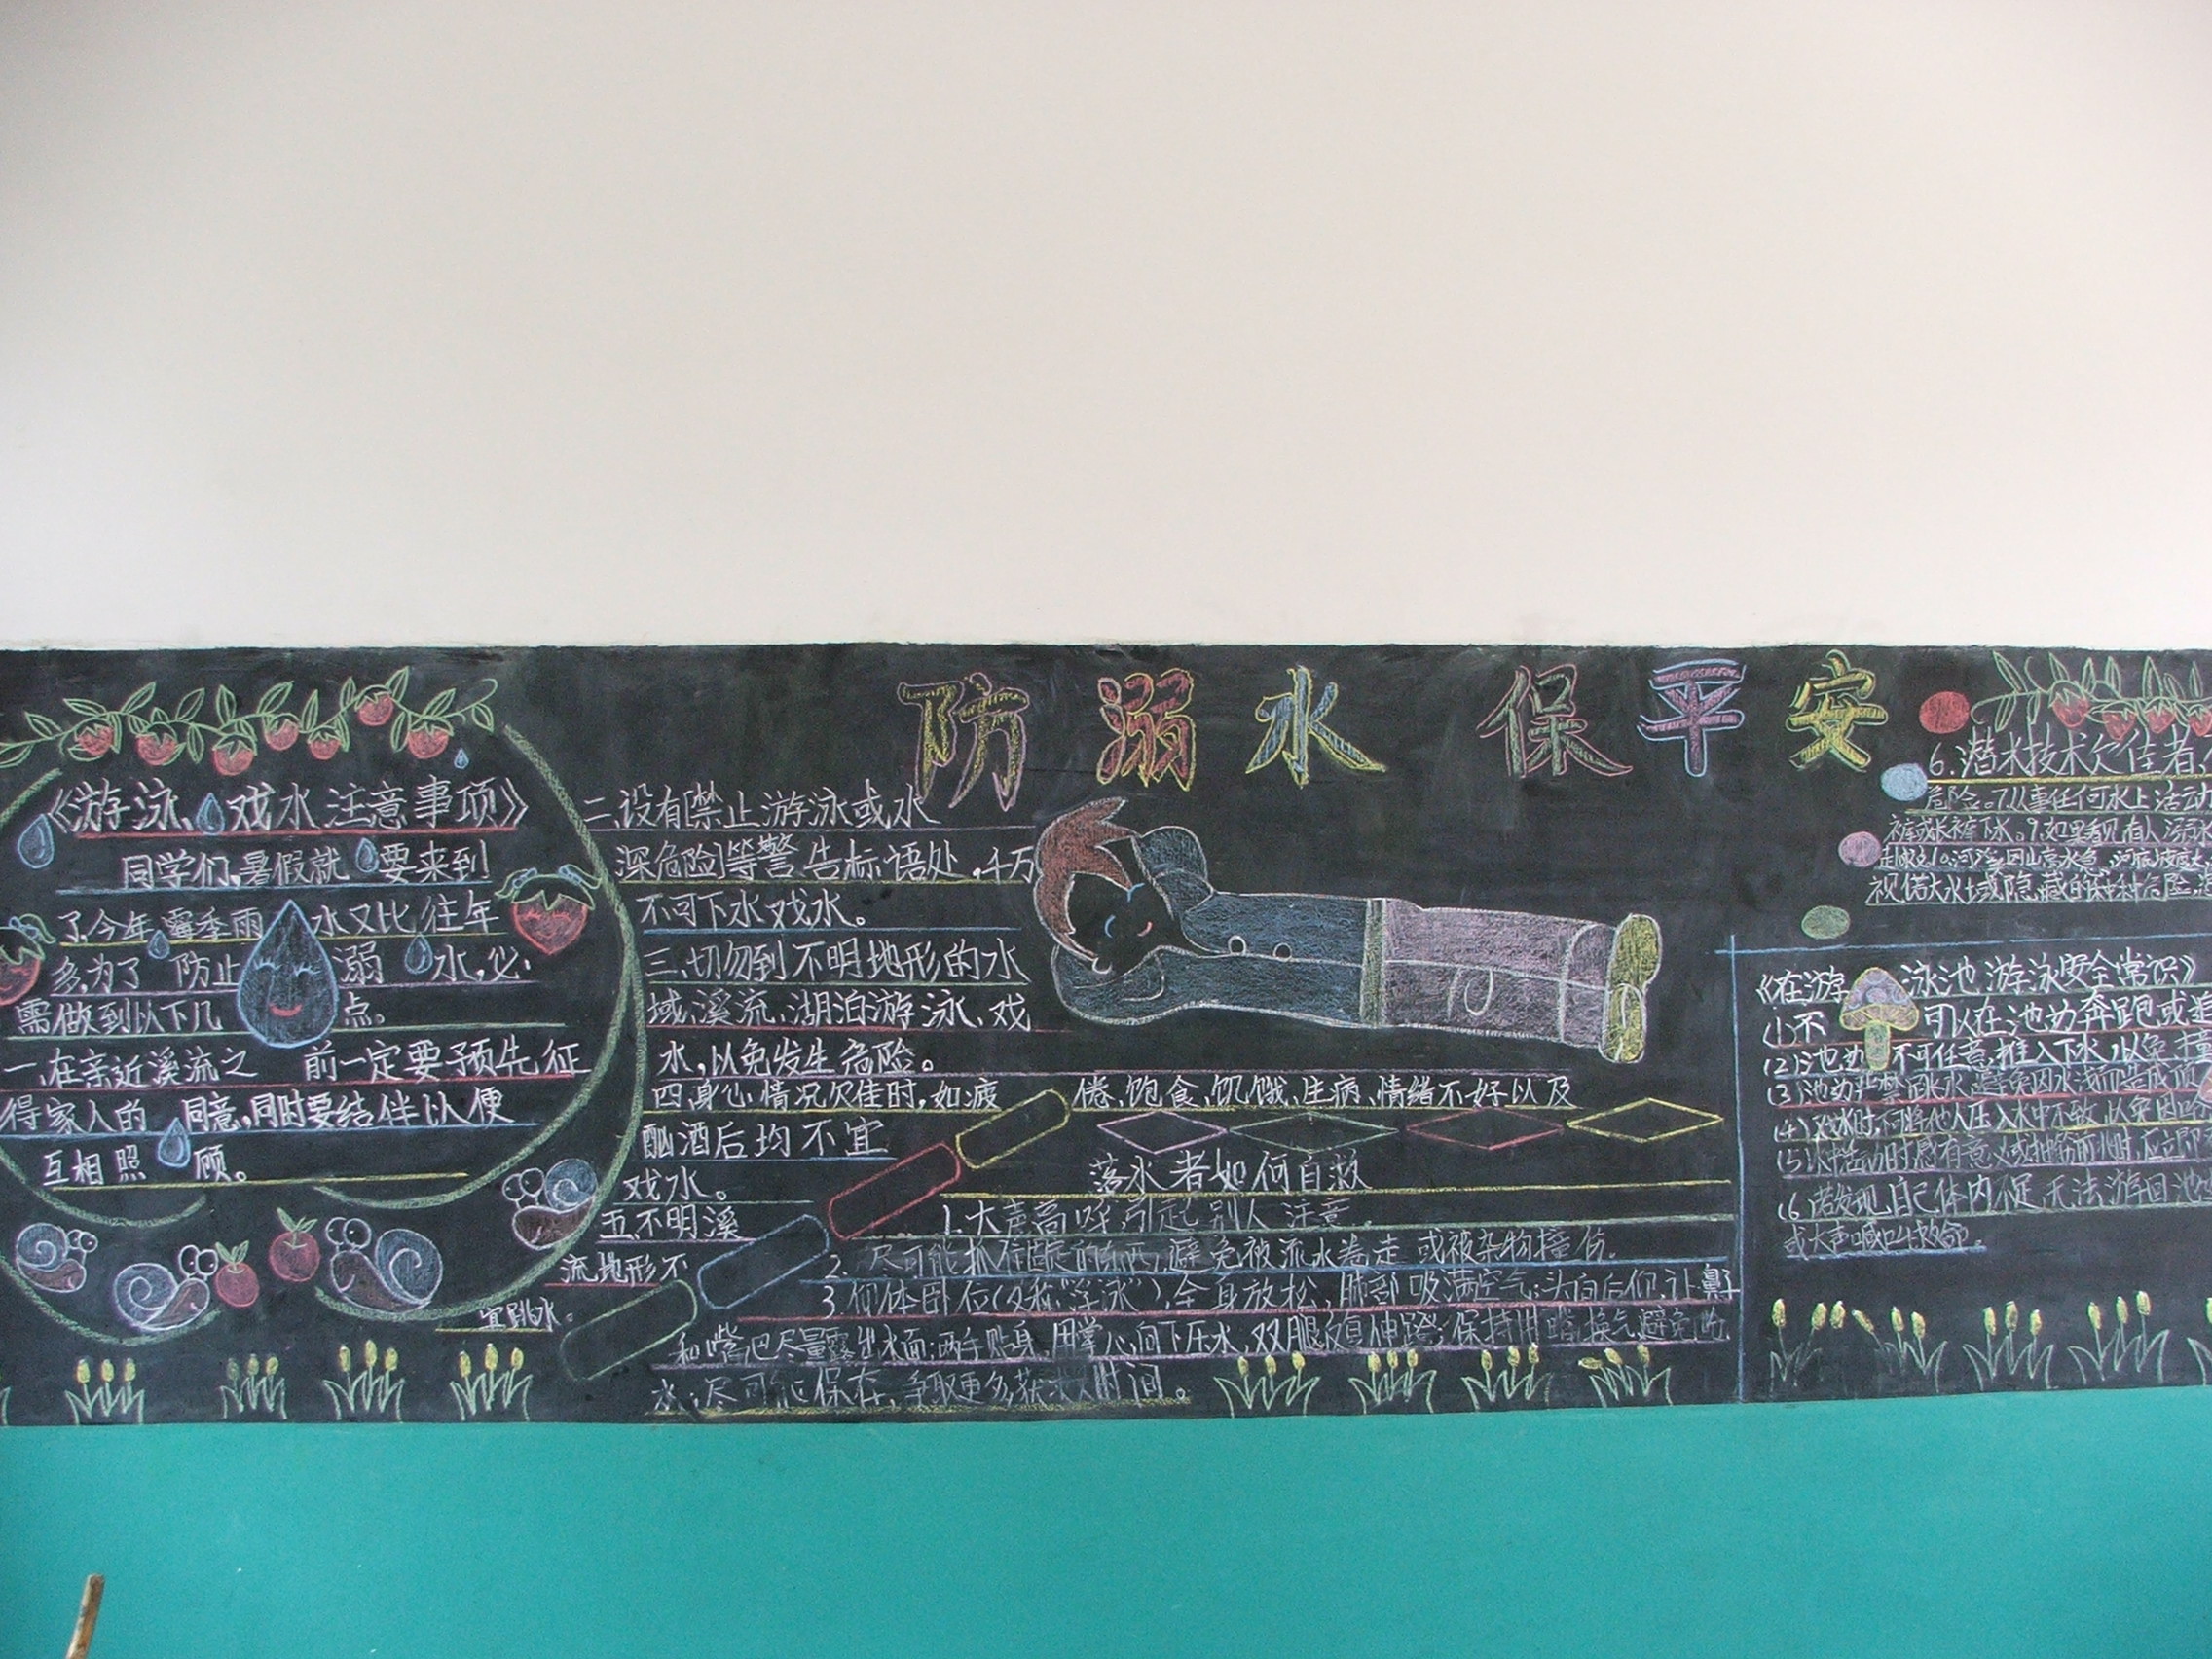 防溺水 保平安
《游泳、戏水注意事项》
同学们,暑假就要来到
了,今年雨水又比往年
多,为了防止溺水,必
需做到以下几点。
一、在亲近溪流之前一定要预先征
得家人的同意,同时要结伴以便
互相照顾。
二、设有禁止游泳或水
深危险等警告标语处,千万
不可下水戏水。
三、切勿到不明地形的水
域、溪流、湖泊游泳、戏
水,以免发生危险。
四、身心情况欠佳时,如疲倦、饱食、饥饿、生病、情绪不好以及
酗酒后均不宜
戏水。
五、不明溪
流地形不
宜跳水。
落水者如何自救
1.大声高呼,引起别人注意。
2.尽可能抓住的东西,避免被流水卷走或被杂物撞伤。
3.仰体卧位(又称"浮泳"),全身放松,肺部吸满空气;头向后仰,让鼻子
和嘴巴尽量露出水面;两手贴身,用掌心向下压水,双腿反复伸蹬;保持用嘴换气,避免呛
水;尽可能保存,争取更多获救时间。
6.潜水技术欠佳者,
危险。7.从事任何水上活动
裤或长裤下水。9.如果看见有人溺
视偌大水域隐藏的种种危险
《在游泳池游泳安全常识》
(1)不可以在池边奔跑或
(2)池边不可任意推人下水,以免撞
(3)池边严禁
(4)戏水时,不可将他人压入水中不放,以免因呛
(5)
(6)若发现自己体力不足,无法游回池
或大声喊叫救命。